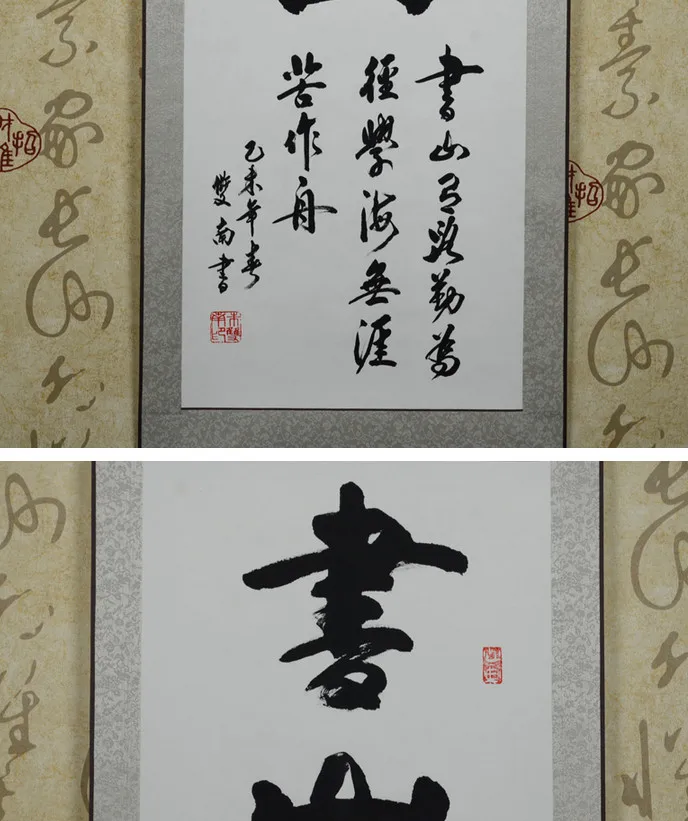 書山有路勤為
徑學海無涯
苦作舟
乙未年春
雙南書
書山